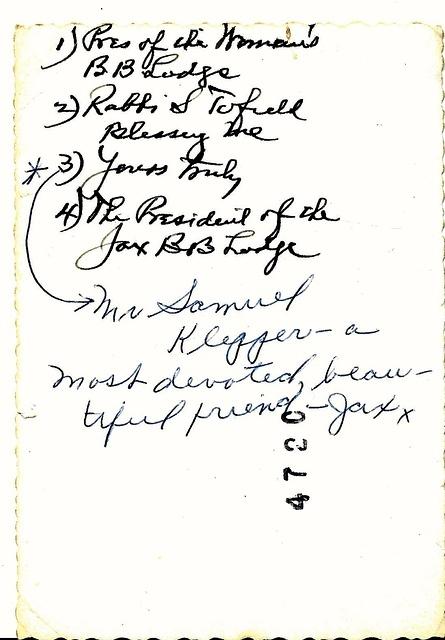 1) Pres of the Woman's
BB Lodge
2) Rabbi S Tofield
Blessing me
* 3) Yours Truly
4) The President of the
Jax BB Lodge
Mr Samuel
Klepper - a
most devoted, beau-
tiful friend - Jax x
4726